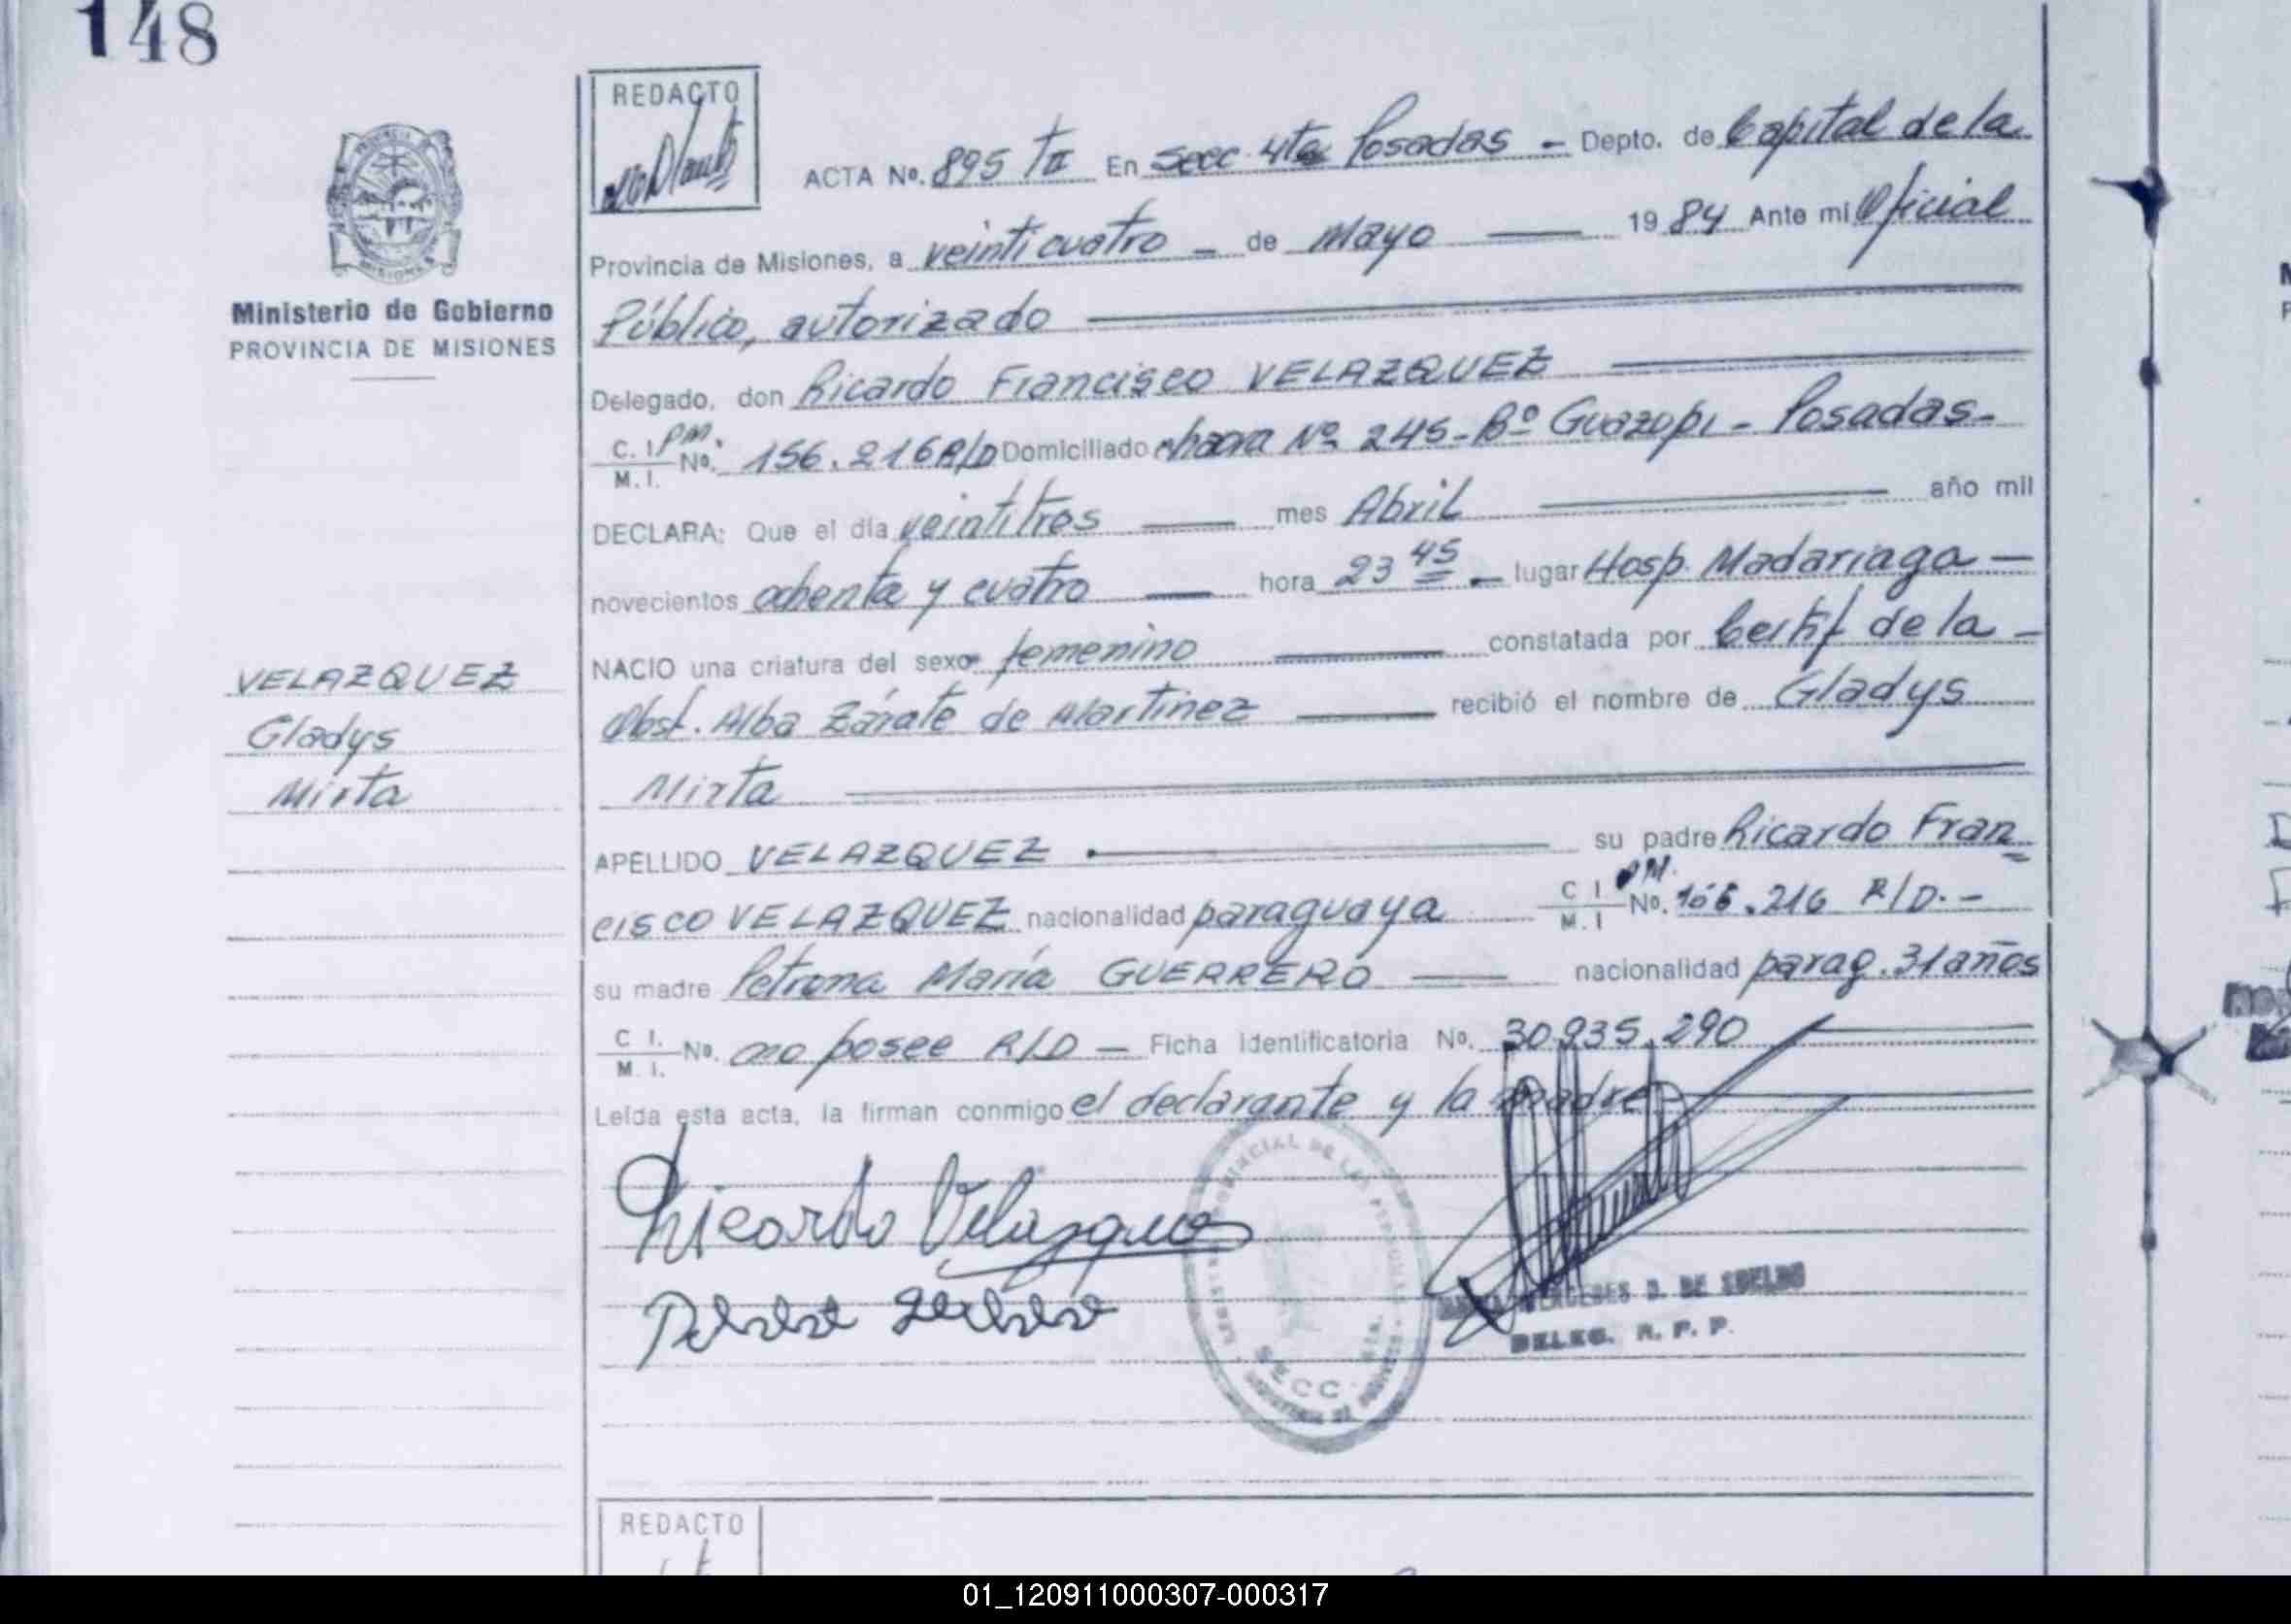 148
REDACTO
ACTA No. 895 TII En Secc. 4ta Posadas - Depto. de Capital de la
Provincia de Misiones, a veinticuatro - de Mayo 1984 Ante mi Oficial
Ministerio de Gobierno
PROVINCIA DE MISIONES
Público, autorizado
Delegado, don Ricardo Francisco VELAZQUEZ
C. I. PM.
M. I. No. 156.216 R/D Domiciliado chacra Nº 245 - Bº Guazopi - Posadas -
DECLARA: Que el día veintitres mes Abril año mil
novecientos ochenta y cuatro hora 23 45 - lugar Hosp. Madariaga -
NACIO una criatura del sexo femenino constatada por Certif de la -
Obst. Alba Zárate de Martinez recibió el nombre de Gladys
Mirta
VELAZQUEZ
Gladys
Mirta
APELLIDO VELAZQUEZ su padre Ricardo Fran
cisco VELAZQUEZ nacionalidad paraguaya C I PM. M. I No. 156.216 R/D. -
su madre Petrona María GUERRERO nacionalidad parag. 31 años
C I. M. I. No. no posee R/D - Ficha Identificatoria No. 30.935.290
Leída esta acta, la firman conmigo el declarante y la madre
Ricardo Velazquez
PROVINCIAL DE LAS PERSONAS
SECC. 4ta.
D. DE
DELEG. R. P. P.
REDACTO
01_120911000307-000317